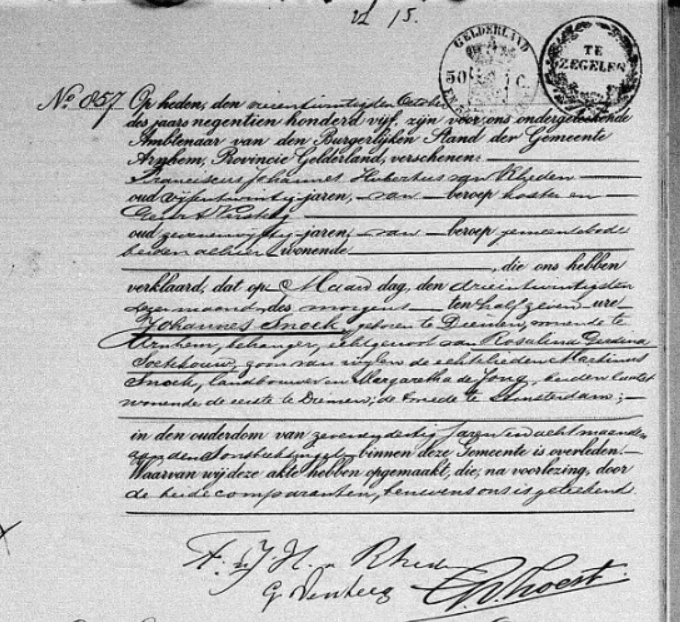 15.
GELDERLAND
50 C.
TE
ZEGELEN
No. 857 Op heden, den vierentwintigsten October
des jaars negentien honderd vijf, zijn voor ons ondergeteekende
Ambtenaar van den Burgerlijken Stand der Gemeente
Arnhem, Provincie Gelderland, verschenen:
Franciscus Johannes Hubertus van Rheden
oud vijfentwintig jaren, van beroep koster en
oud zevenenvijftig jaren, van beroep gemeentebode
beiden alhier wonende
, die ons hebben
verklaard, dat op Maandag, den drieëntwintigsten
dezer maand, des morgens ten half zeven ure
Johannes Snoek, geboren te Diemen, wonende te
Arnhem, behanger, echtgenoot van Rosalina Gerdina
zoon van wijlen de echtlieden Machinus
Snoek, landbouwer en Margaretha de Jong, beiden laatst
wonende de eerste te Diemen, de tweede te Amsterdam;
in den ouderdom van zevenendertig jaren en acht maanden
aan den binnen deze Gemeente is overleden.
Waarvan wij deze akte hebben opgemaakt, die, na voorlezing, door
de beide comparanten, benevens ons is geteekend.
F. J. H. v Rheden